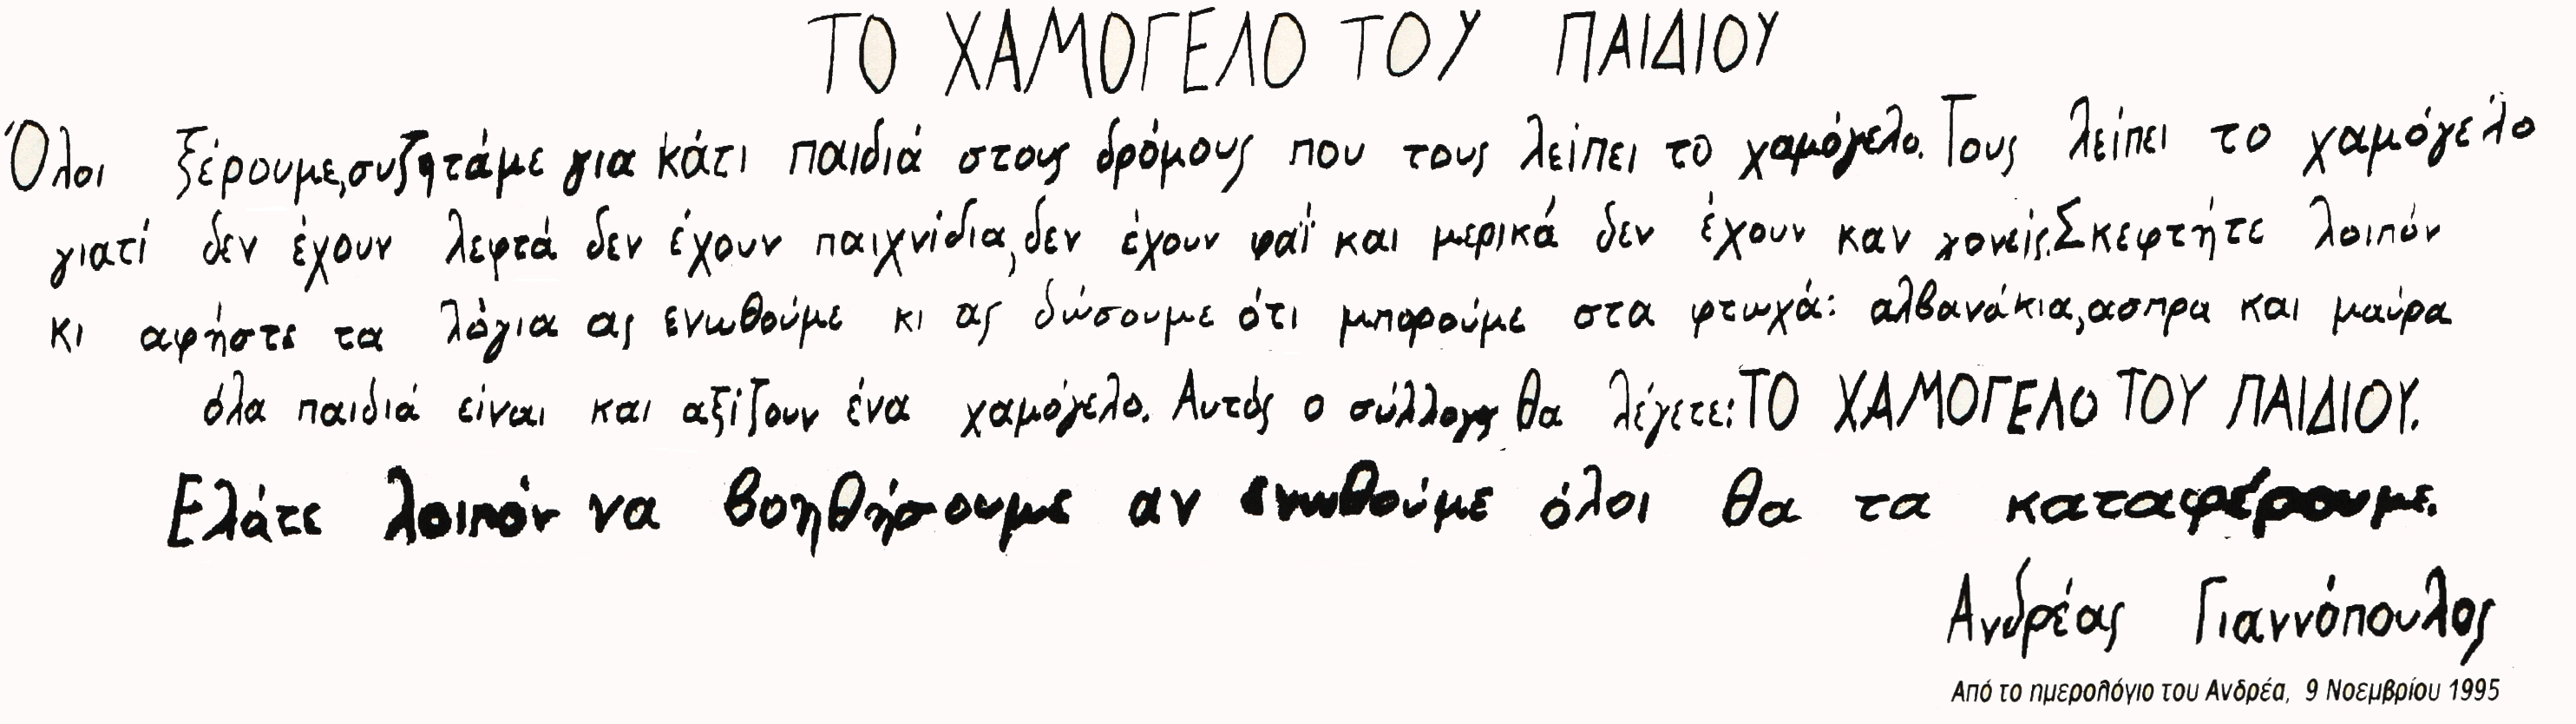 ΤΟ ΧΑΜΟΓΕΛΟ ΤΟΥ ΠΑΙΔΙΟΥ
Όλοι ξέρουμε,συζητάμε για κάτι παιδιά στους δρόμους που τους λείπει το χαμόγελο. Τους λείπει το χαμόγελο
γιατί δεν έχουν λεφτά δεν έχουν παιχνίδια,δεν έχουν φαΐ και μερικά δεν έχουν καν γονείς.Σκεφτήτε λοιπόν
κι αφήστε τα λόγια ας ενωθούμε κι ας δώσουμε ότι μπορούμε στα φτωχά: αλβανάκια,ασπρα και μαύρα
όλα παιδιά είναι και αξίζουν ένα χαμόγελο. Αυτός ο σύλλογος θα λέγετε:ΤΟ ΧΑΜΟΓΕΛΟ ΤΟΥ ΠΑΙΔΙΟΥ.
Ελάτε λοιπόν να βοηθήσουμε αν ενωθούμε όλοι θα τα καταφέρουμε.
Ανδρέας Γιαννόπουλος
Από το ημερολόγιο του Ανδρέα, 9 Νοεμβρίου 1995